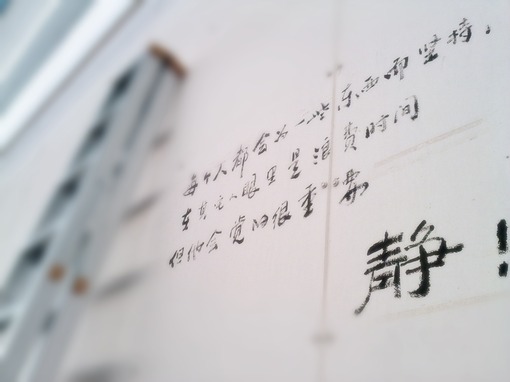 每个人都会为一些东西而坚持，
在其它人眼里是浪费时间
但他会觉的很重要
静！